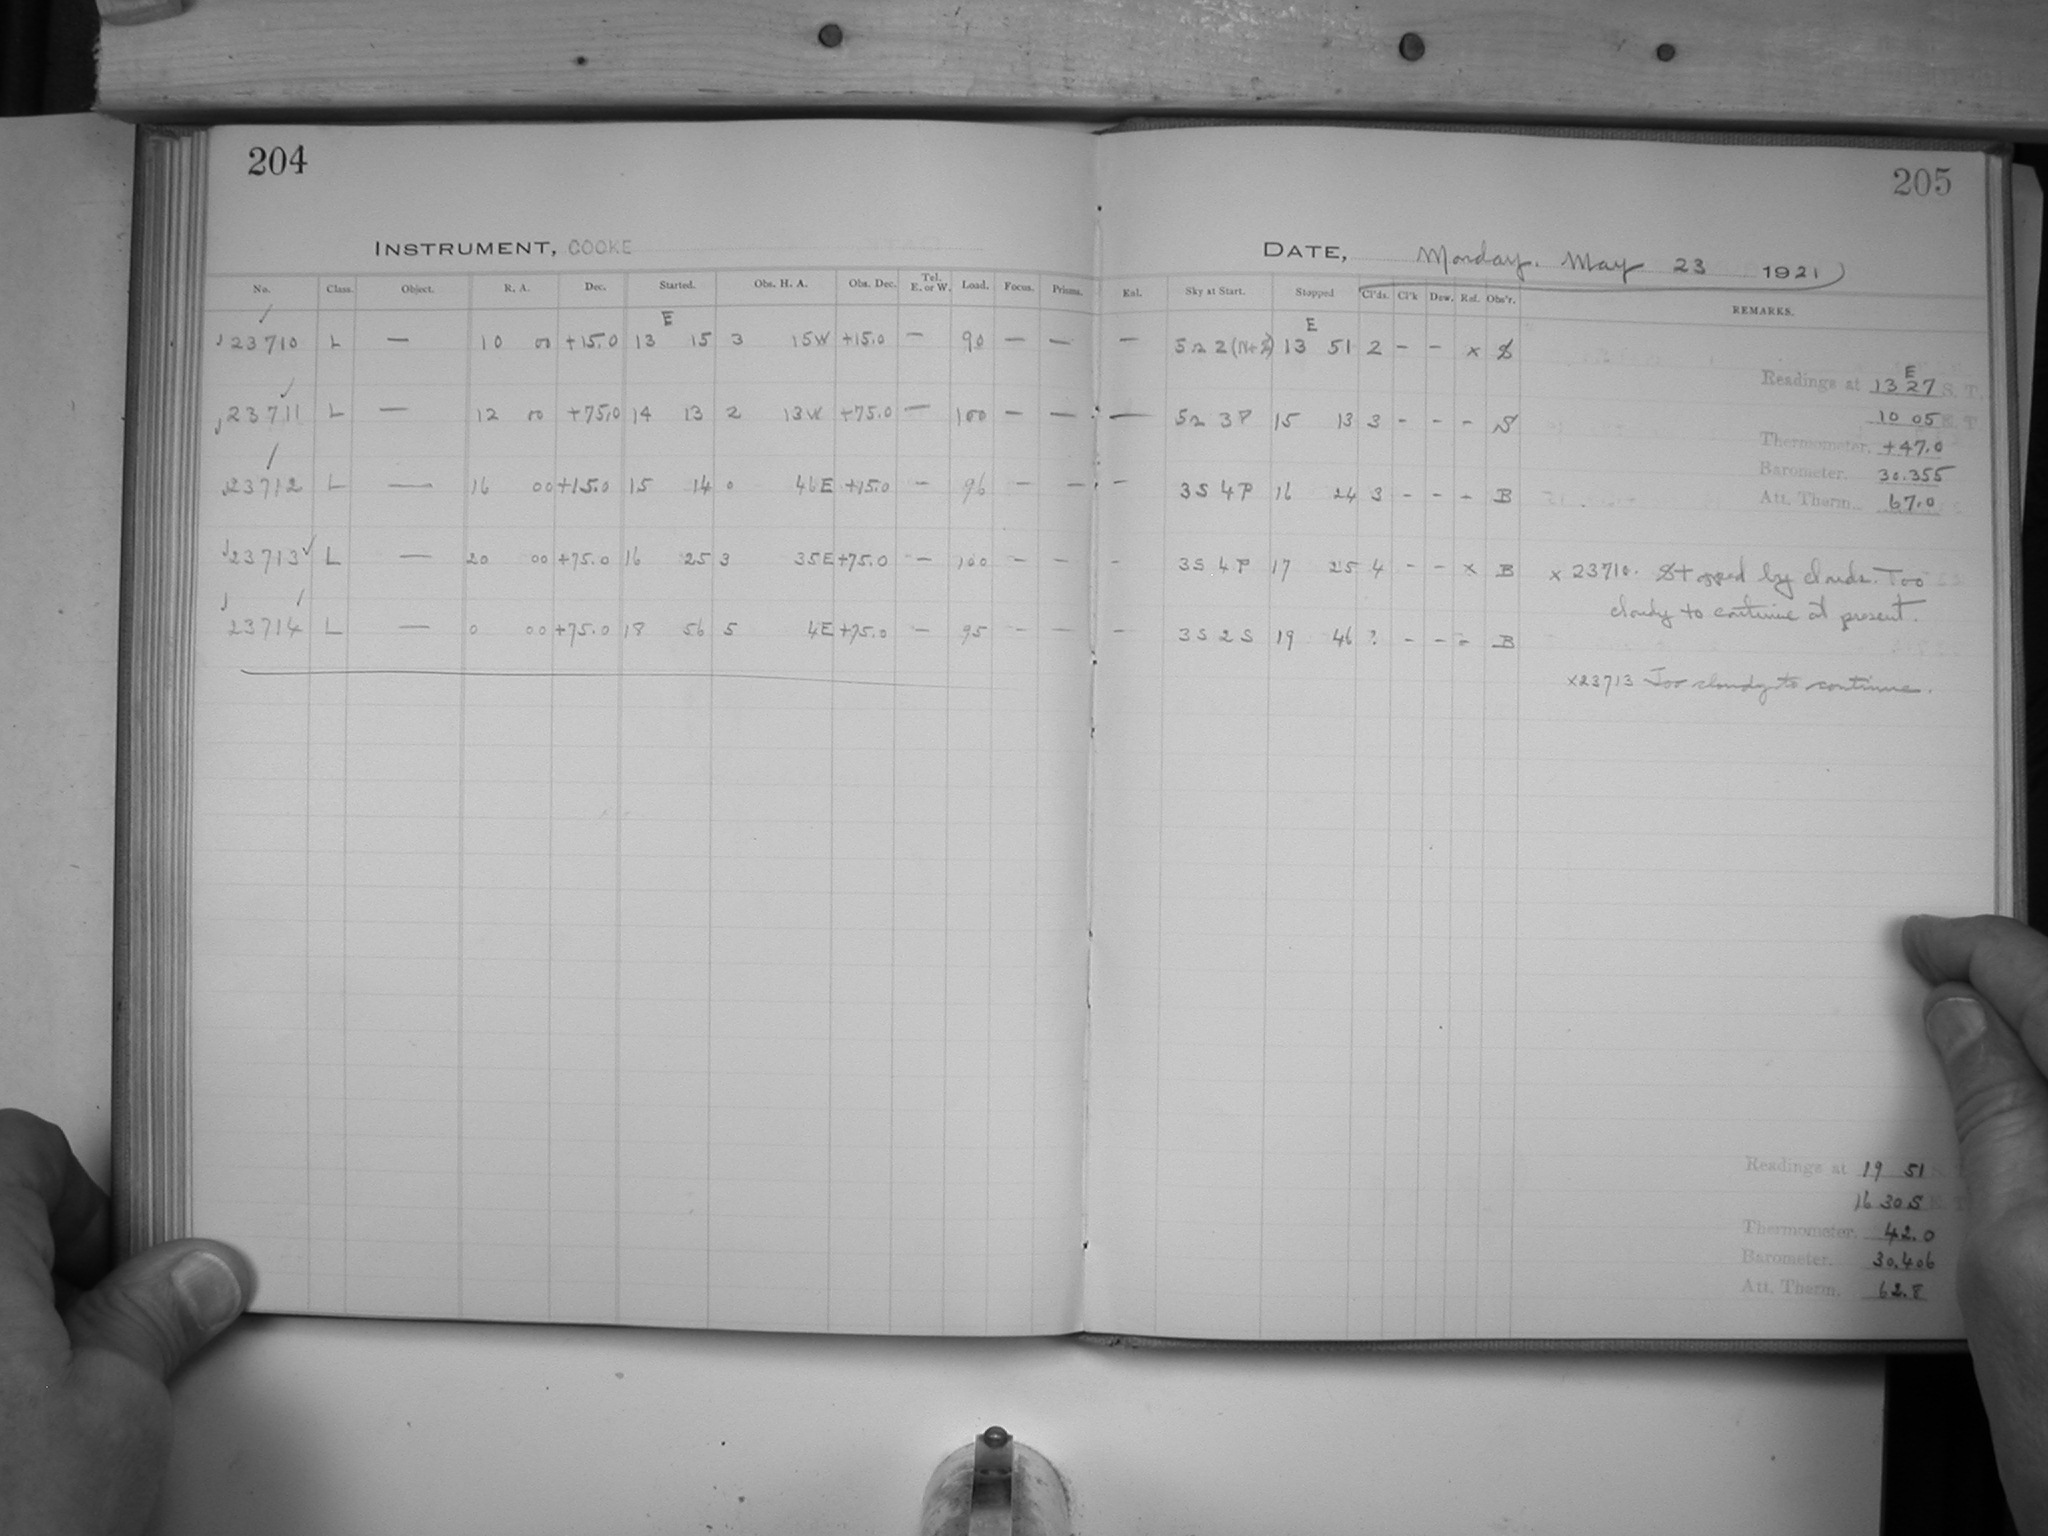 204
205
INSTRUMENT, COOKE
DATE, Monday. May 23 1921
No. Class. Object. R. A. Dec. Started. Obs. H. A. Obs. Dec. Tel. E. or W. Load. Focus. Prisms. Exl. Sky at Start. Stopped Cl'ds. Cl'k Dew. Ref. Obs'r. REMARKS.
E E
23710 L — 10 00 +15.0 13 15 3 15W +15.0 — 90 — — — 13 51 2 - - x S
23711 L — 12 00 +75.0 14 13 2 13W +75.0 — 100 — — — 5n 3P 15 13 3 - - - S
23712 L — 16 00 +15.0 15 14 0 46E +15.0 — 96 — — - 3S 4P 16 24 3 - - - B
23713 L — 20 00 +75.0 16 25 3 35E +75.0 — 100 — — - 3S 4P 17 25 4 - - x B
23714 L — 0 00 +75.0 18 56 5 4E +75.0 — 95 — — - 3S 2S 19 46 ? - - - B
Readings at 13 27 S. T.
E
10 05 E. T.
Thermometer. +47.0
Barometer. 30.355
Att. Therm. 67.0
x 23710. Stopped by clouds. Too
cloudy to continue at present.
x23713 Too cloudy to continue.
Readings at 19 51
16 30 5
Thermometer. 42.0
Barometer. 30.406
Att. Therm. 62.8